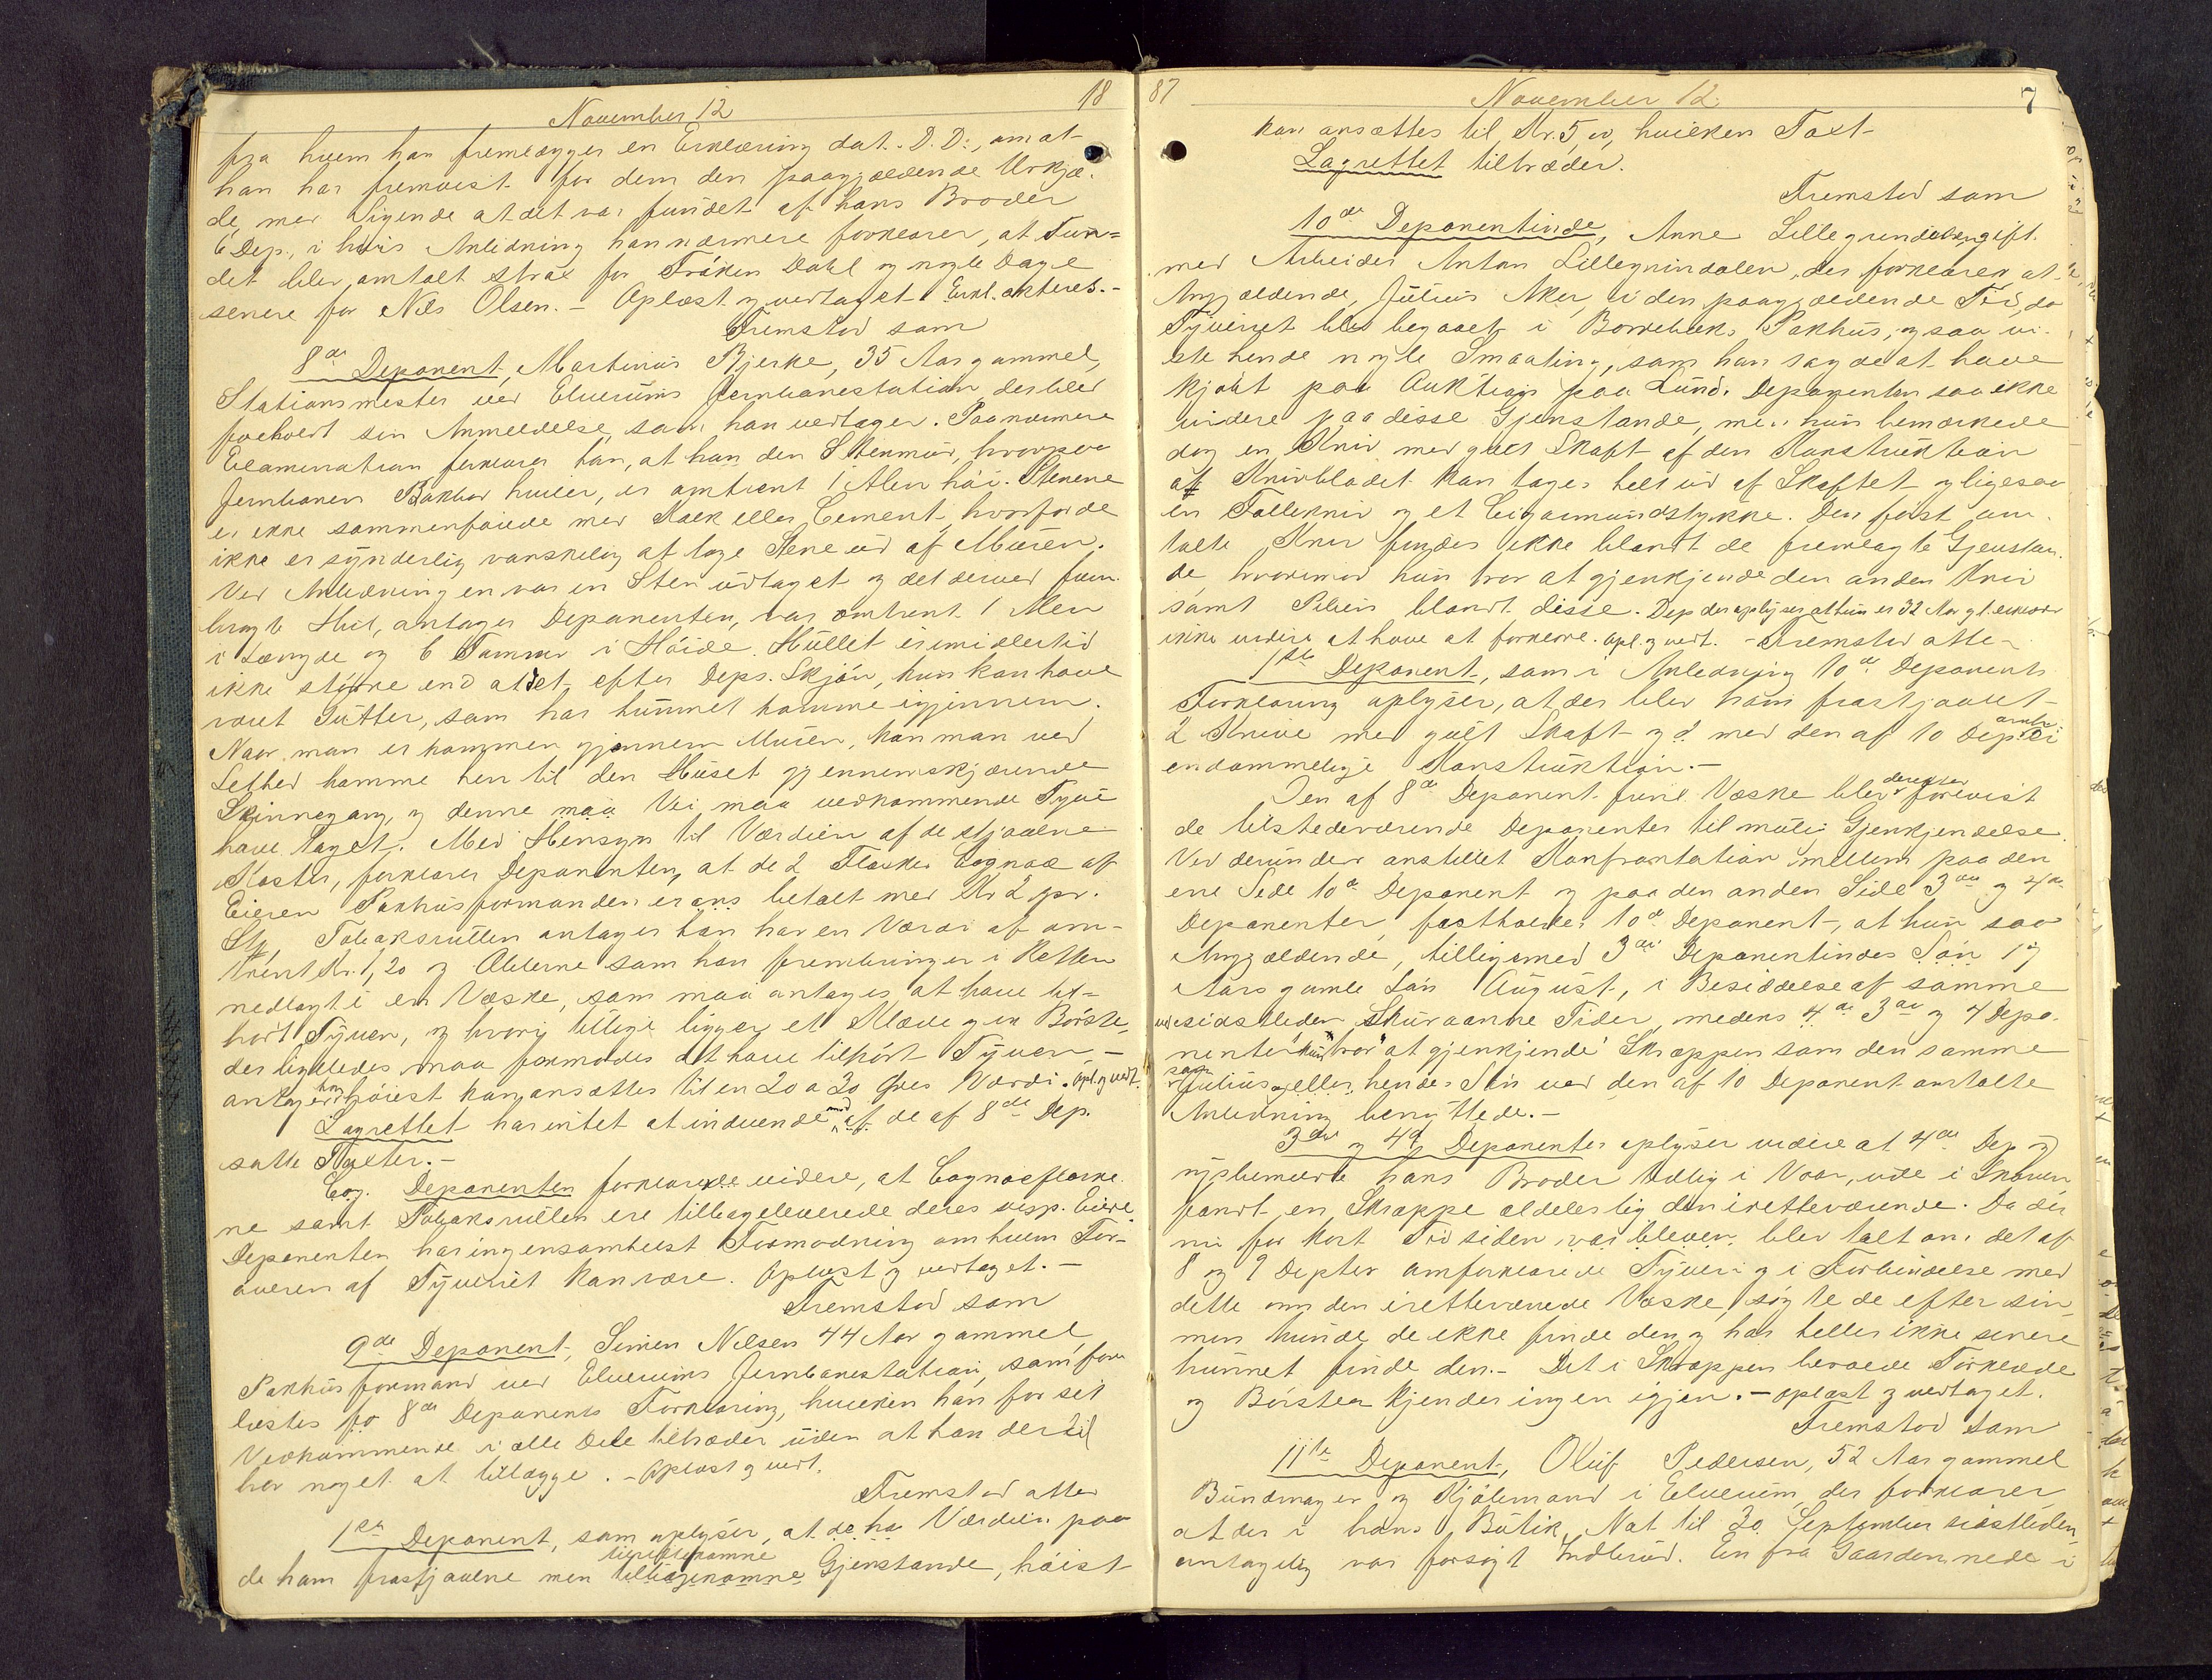 18
November 12
fra hvem han fremlægger en Erklæring dat. D. D:, om at
han har fremvist for dem den paagjældende Urkjæ-
de, med Sigende at det var fundet af hans Broder
6 Dep., i hvis Anledning han nærmere forklarer, at Fun=
det blev omtalt strax for Frøken Dahl og nogle Dage
senere for Nils Olsen. - Oplæst og vedtaget. Erkl. akteres.-
Fremstod som
8de Deponent, Martinius Bjerke, 35 Aar gammel,
Stationsmester ved Elverums Jernbanestation der blev
foreholdt sin Anmeldelse, som han vedtager. Paa nærmere
Examination forklarer han, at han den Stenmur, hvorpaa
Jernbanens Pakbod hviler, er omtrent 1 Alen høi. Stenene
er ikke sammenføiede med Kalk eller Cement, hvorfor de
ikke er synderlig vanskelig at tage Stene ud af Muren.
Ved Anledningen var en Sten udtaget og det derved frem-
bragte Hul, antager Deponenten, var omtrent 1 Alen
i Længde og 6 Tommer i Høide. Hullet er imidlertid
ikke større end at det efter Deps. Skjøn, kun kan have
været Gutter, som har kunnet komme igjennem.
Naar man er kommen gjennem Muren, kan man ved
Lethed komme hen til den Huset gjennemskjærende
Skinnegang, og denne maa Vei maa vedkommende Tyve
have taget. Med Hensyn til Værdien af de stjaalne
Koster, forklarer Deponenten, at de 2 Flasker Cognac af
Eieren Pakhusformanden er ans betalt med Kr 2 pr.
Stk, Tobaksrullen antager han har en Værdi af om-
trent Kr. 1,20 og Æblerne som han frembringer i Retten
nedlagt i en Væske, som maa antages at have til=
hørt Tyven, og hvori tillige ligger et Klæde og en Børste,
der ligeledes maa formodes at have tilhørt Tyven, -
antager han høiest kan ansættes til en 20 a 30 Øres Værdi. Opl. og vedt.
Lagrettet har intet at indvende mod af de af 8de Dep.
satte Taxter. -
Cog. Deponenten forklarede videre, at Cognacflaske
ne samt Tobaksrullen ere tilbageleverede deres resp. Eiere.
Deponenten har ingensomhelst Formodning om hvem For-
øveren af Tyveriet kan være. Oplæst og vedtaget. -
Fremstod som
9de Deponent, Simen Nilsen 44 Aar gammel,
Pakhusformand ved Elverums Jernbanestation, som fore
læstes for 8de Deponents Forklaring, hvilken han for sit
Vedkommende i alle Dele tiltræder uden at han dertil
har noget at tillægge. - Oplæst og vedt.
Fremstod atter
1ste Deponent, som oplyser, at de ha Værdien paa
de ham frastjaalne men tilrettekomne tilbagekomne Gjenstande, høist
87
November 12
7
kan ansættes til Kr. 5,00, hvilken Taxt
Lagrettet tiltræder.
Fremstod som
10de Deponentinde, Anne Lillegrindalen gift
med Arbeider Anton Lillegrindalen, der forklarer at
Angjældende, Julius Aker, i den paagjældende Tid, da
Tyveriet blev begaaet i Borrebæks Pakhus, ogsaa vi-
ste hende nogle Smaating, som han sagde at have
kjøbt paa Auktion paa Lund. Deponenten saa ikke
videre paa disse Gjenstande, men hun bemærkede
dog en Kniv med gult Skaft af den Konstruktion
at Knivbladet kan tages helt ud af Skaftet og ligesaa
en Follekniv og et Cigarmundstykke. Den først om-
talte Kniv findes ikke blandt de fremlagte Gjenstan-
de hvorimod hun tror at gjenkjende den anden Kniv
samt Piben blandt disse. Dep der oplyser at hun er 32 Aar gl. erklærer
ikke videre at have at forklare. Opl. og vedt. - Fremstod atter
1ste Deponent, som i Anledning 10de Deponents
Forklaring oplyser, at der blev ham frastjaalet
2 Knive med gult Skaft og 2 med den af 10 Dep. omh.
eiendommelige Konstruktion.-
Den af 8de Deponent fund. Væske blev derefter forevist
de tilstedeværende Deponenter til mulig Gjenkjendelse.
Ved derunder anstillet Konfrontation mellem paa den
ene Side 10de Deponent og paa den anden Side 3die og 4de
Deponenter, fastholder 10de Deponent, at hun saa
Angjældende, tilligemed 3die Deponentindes Søn 17
Aars gamle Søn August, i Besiddelse af samme
ved sidstleden Skuraanne Tider, medens 4de 3die og 4 Depo-
nenter kun "tror" at gjenkjende Skreppen som den samme
som Julius og eller hendes Søn ved den af 10 Deponent omtalte
Anledning benyttede.-
3die og 4de Deponenter oplyser videre at 4de Dep og
nysbemeldte hans Broder tidlig i Vaar, ude i Skoven
fandt en Skreppe aldeles lig den iretteværende. Da der
nu for kort Tid siden var bleven blev talt om det af
8 og 9 Depter omforklarede Tyveri og i Forbindelse med
dette om den iretteværende Væske, søgte de efter sin,
men kunde de ikke finde den og har heller ikke senere
kunnet finde den.- Det i Skreppen beroede Tørklæde
og Børsten kjender ingen igjen. - oplæst og vedtaget.
Fremstod som
11te Deponent, Oluf Pedersen, 52 Aar gammel
Bundmager og Kjøbmand i Elverum, der forklarer
at der i hans Butik, Nat til 30 September sidstleden
antagelig var forsøgt Indbrud. En fra Gaarden nede i